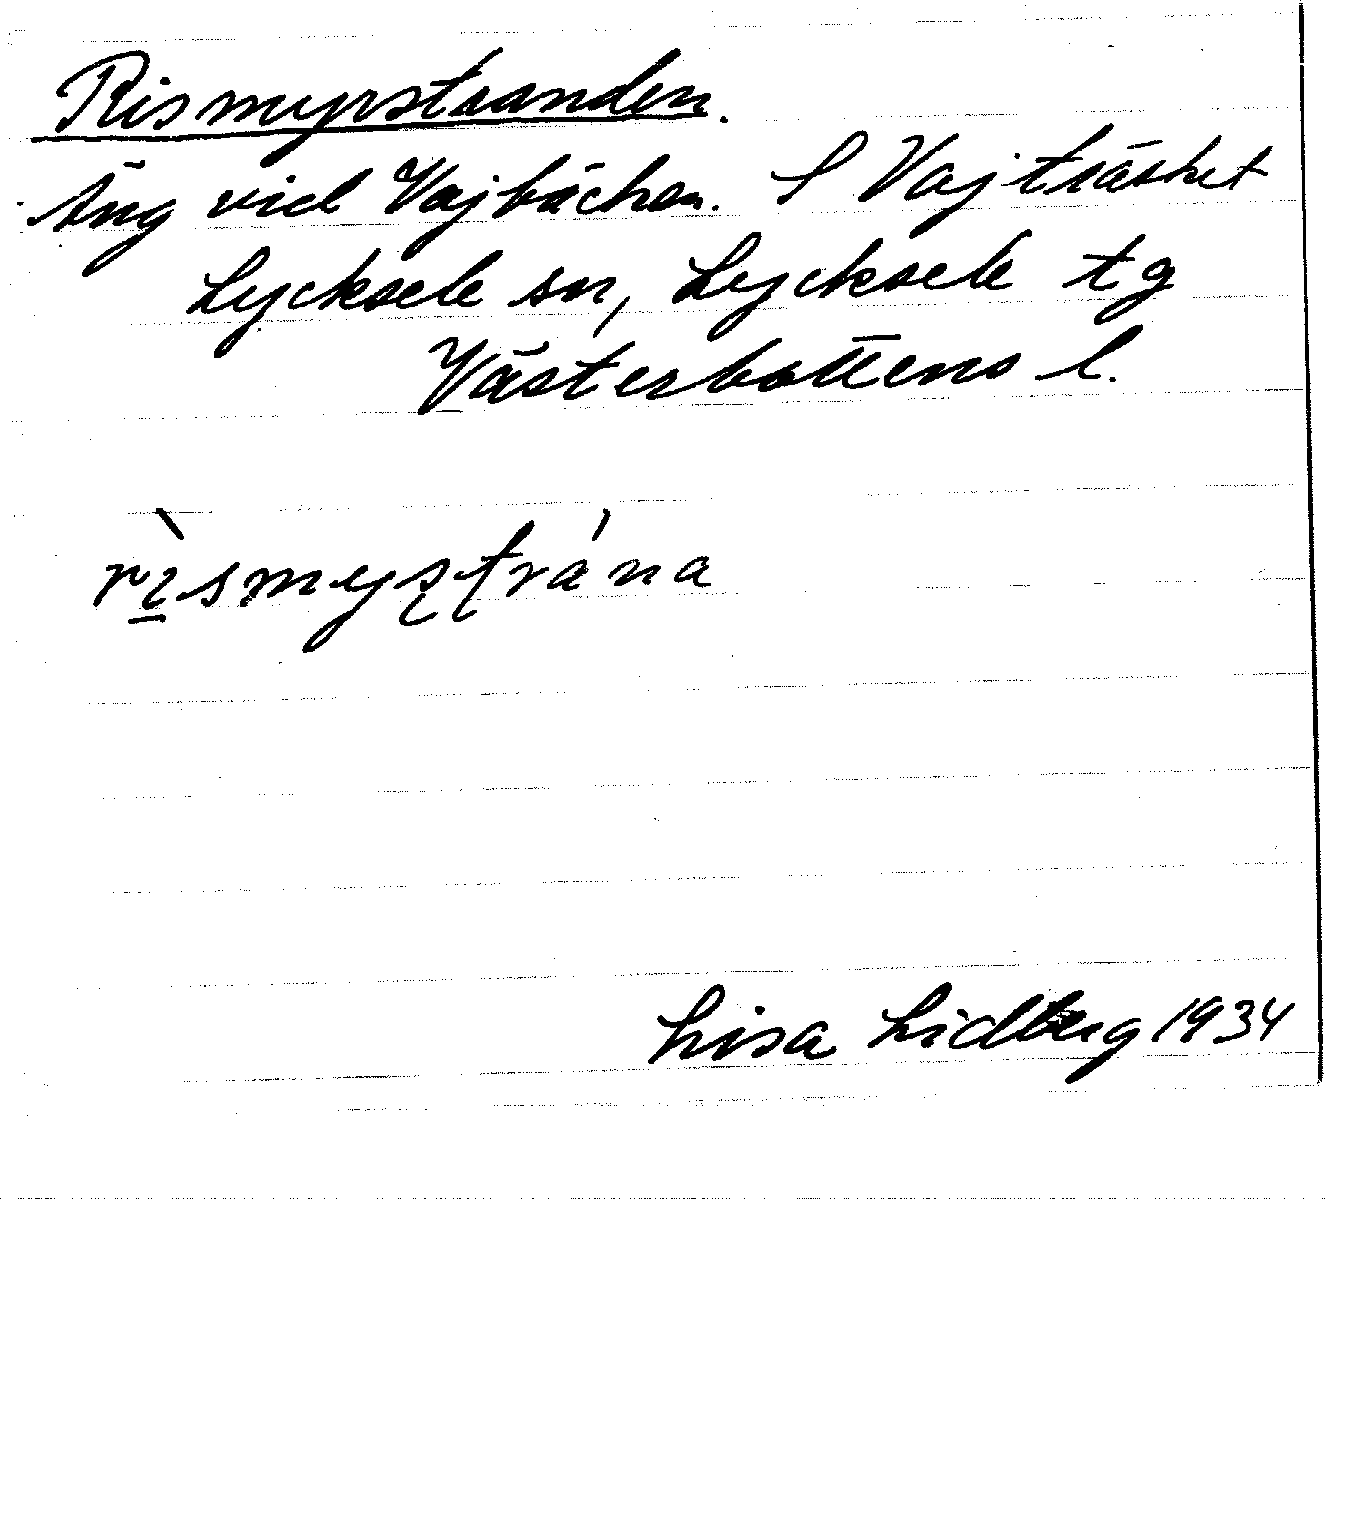 Rismyrstranden.
Äng vid Vajbäcken. S Vajträsket
Lycksele sn, Lycksele tg
Västerbottens l.
rı̀smyʂʈrána
Lisa Lidberg 1934